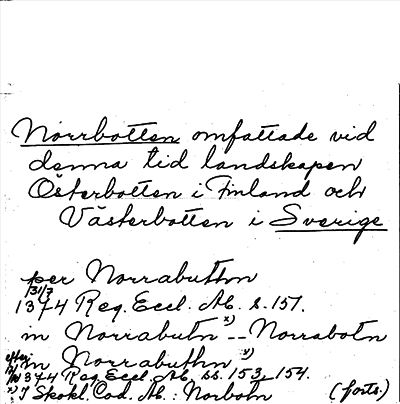 Norrbotten omfattade vid
denna tid landskapen
Österbotten i Finland och
Västerbotten i Sverige
per Norrabuthn
31/7
1374 Reg. Eccl. Ab. s. 157.
in Norrabutn x) -- Norrabotn
efter
in Norrabuthn y)
1374 Reg. Eccl. Ab. ss. 153, 154.
x) I Skokl. Cod. Ab.: Norbotn (forts.)